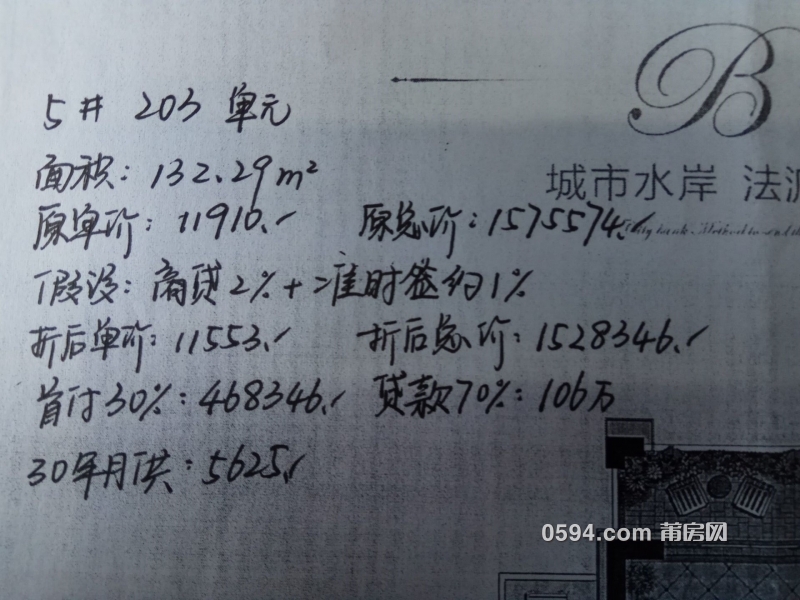 B
城市水岸 法
5# 203 单元
面积: 132.29m²
原单价: 11910.✓ 原总价: 1575574.✓
假设: 商贷2%+准时签约1%
折后单价: 11553.✓ 折后总价: 1528346.✓
首付30%: 468346.✓ 贷款70%: 106万
30年月供: 5625.✓
0594.com 莆房网